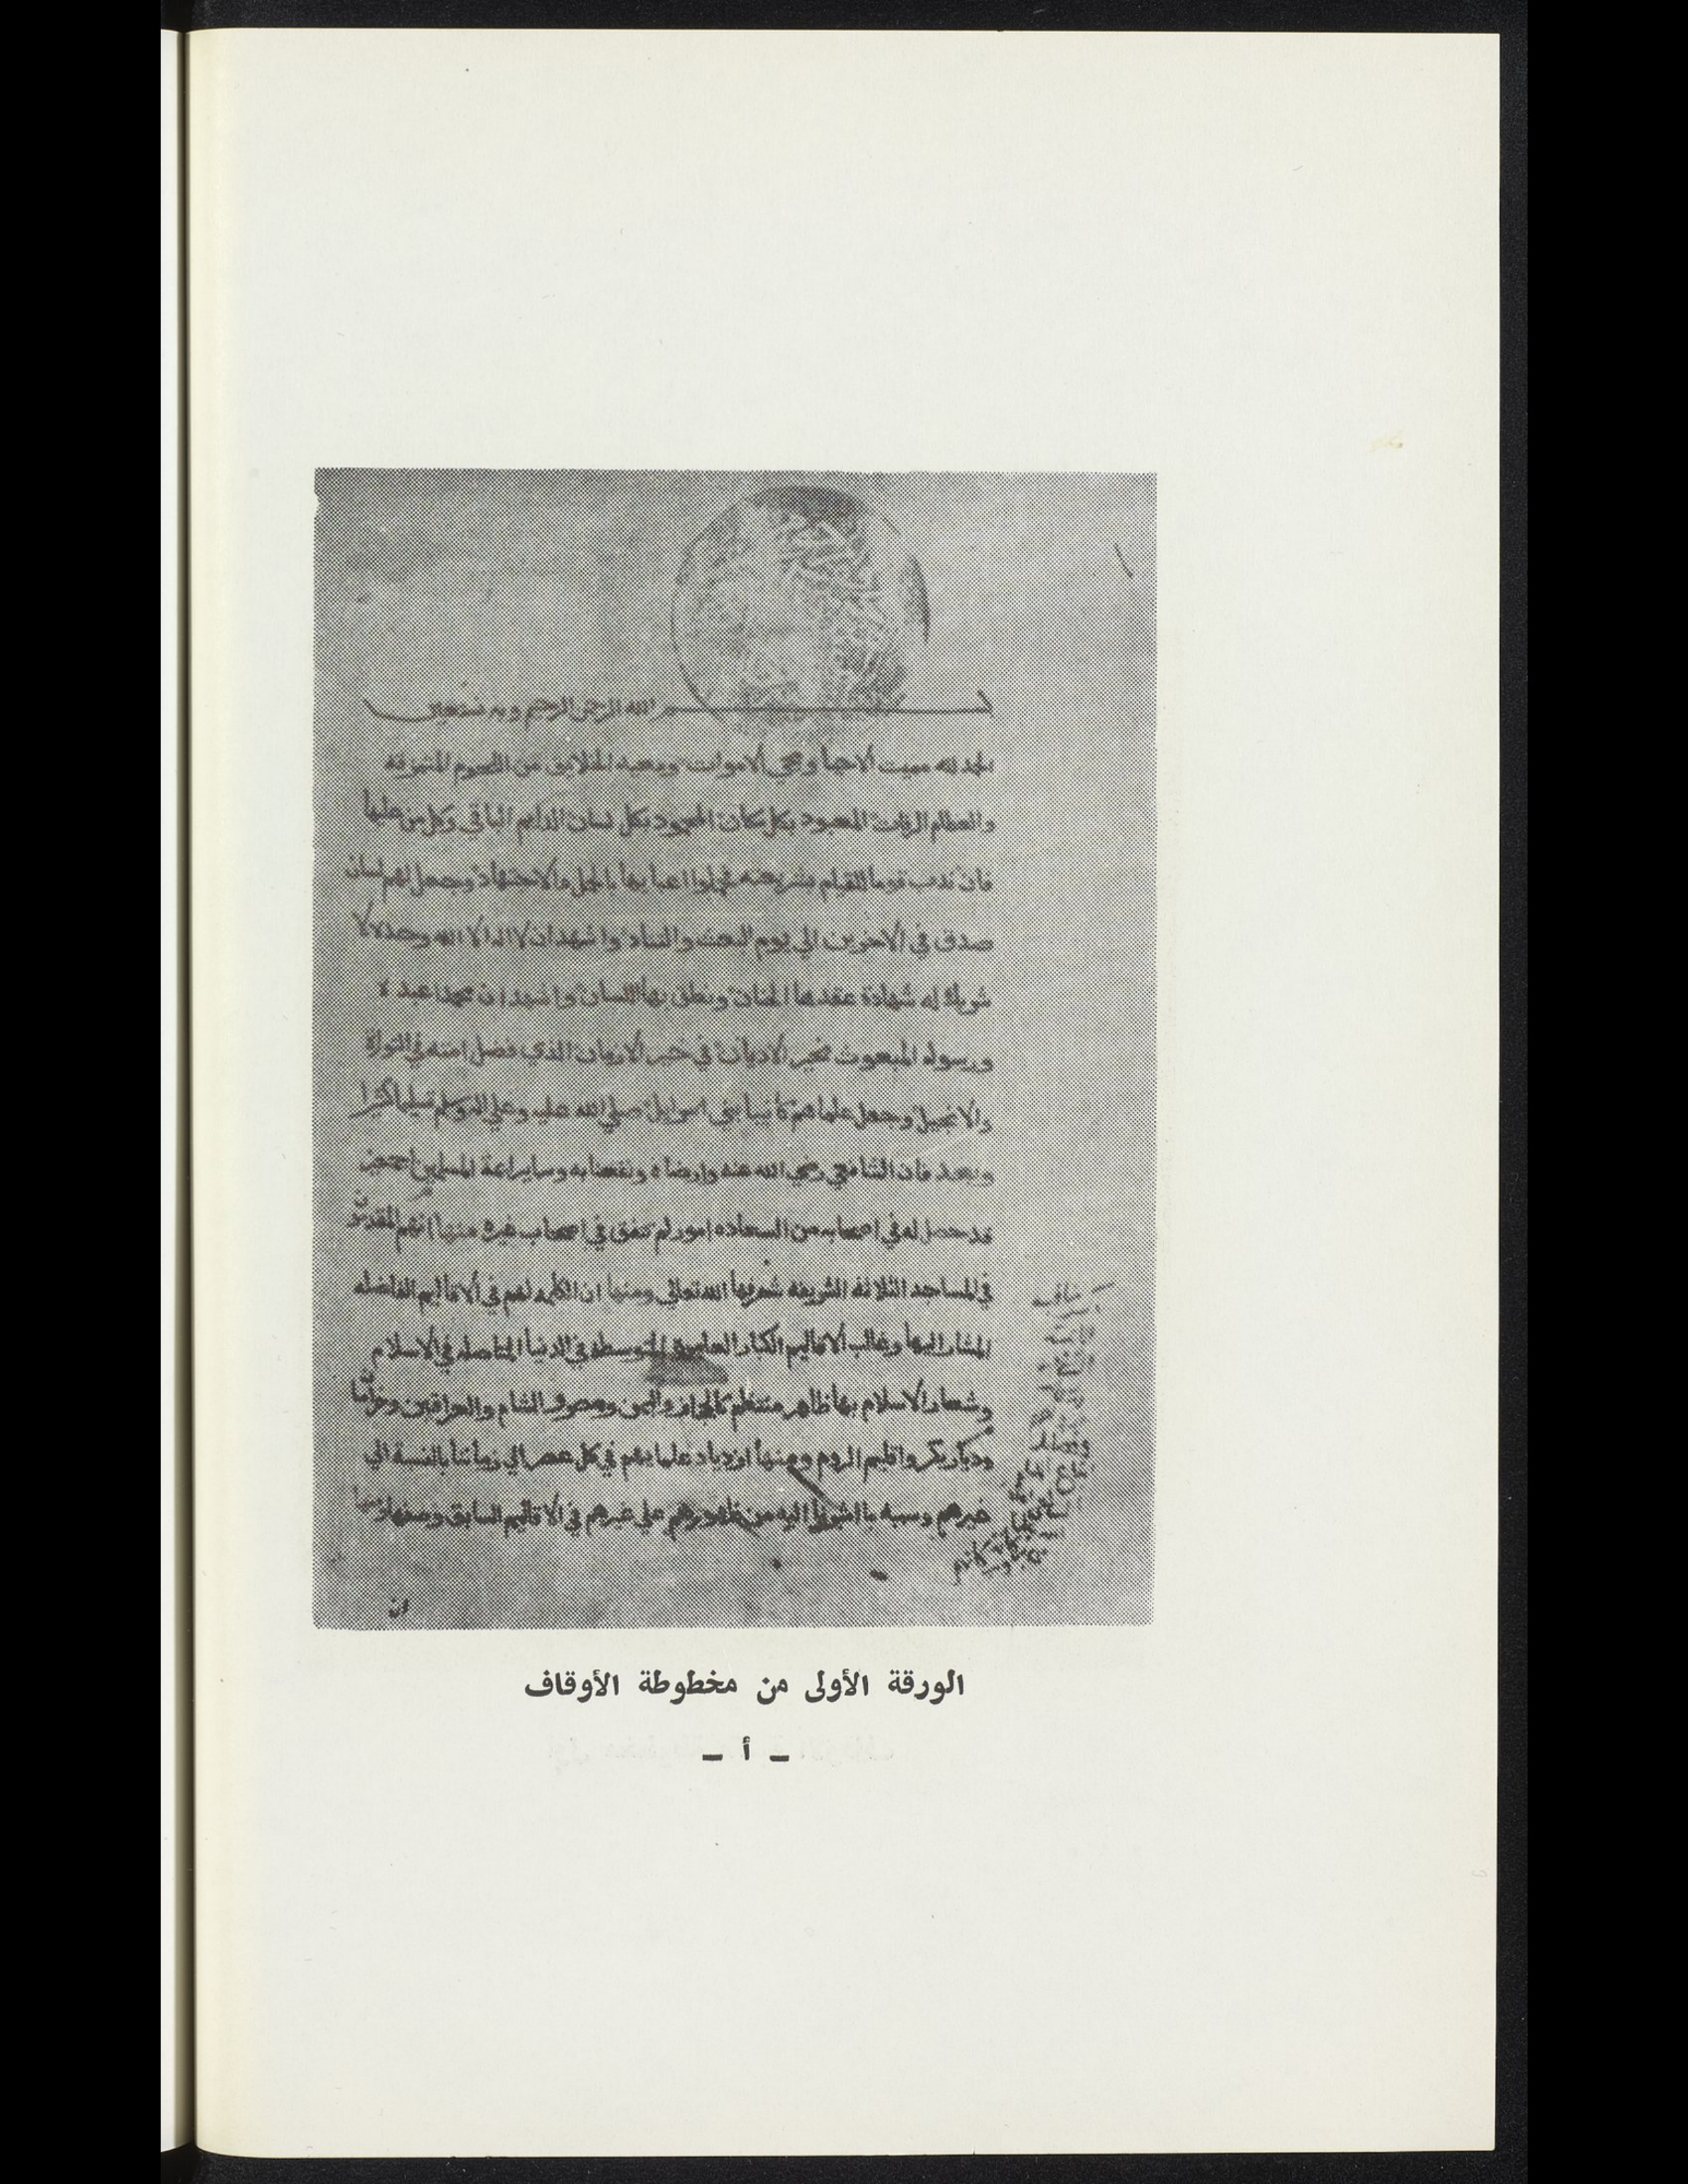 بسم الله الرحمن الرحيم وبه نستعين
الحمد لله مميت الاحيا ومحي الاموات ومعيد الخلايق من اللحوم المتمزقه
والعظام الرفات المعبود بكل مكان المحمود بكل لسان الدايم الباقي وكل من عليها
فان ندب قوما للقيام بشريعته اعبايها بالجد والاجتهاد وجعل لهم لسان
صدق في الاخرين الي يوم البعث والتناد واشهد ان لا اله الا الله وحده لا
شريك له شهادة عقدها الجنان ونطق بها اللسان واشهد ان محمدا عبده
ورسوله المبعوث بخير الاديان في خير الازمان الذي فضل امته في التوراة
والانجيل وجعل علماهم كانبيا بني اسرايل صلي الله عليه وعلي اله وسلم تسليما كثيرا
وبعد فان الشافعي رضي الله عنه وارضاه ونفعنا به وساير ايمة المسلمين اجمعين
قد حصل له في اصحابه من السعاده امور لم تتفق في اصحاب غيره منها انهم المقدمون
في المساجد الثلاثه الشريفه شرفها الله تعالي ومنها ان الكلمه لهم في الاقاليم الفاضله
المشار اليها وغالب الاقاليم الكبار العامره المتوسطه في الدنيا المتاصله في الاسلام
وشعار الاسلام بها ظاهر منتظم كالحجاز واليمن ومصر والشام والعراقين وخراسان
وديار بكر واقليم الروم ومنها ازدياد علمايهم في كل عصر الي زماننا بالنسبة الي
غيرهم وسببه ما اشرنا اليه من ظهورهم علي غيرهم في الاقاليم السابق وصفها
ان
الورقة الأولى من مخطوطة الأوقاف
ــ أ ــ